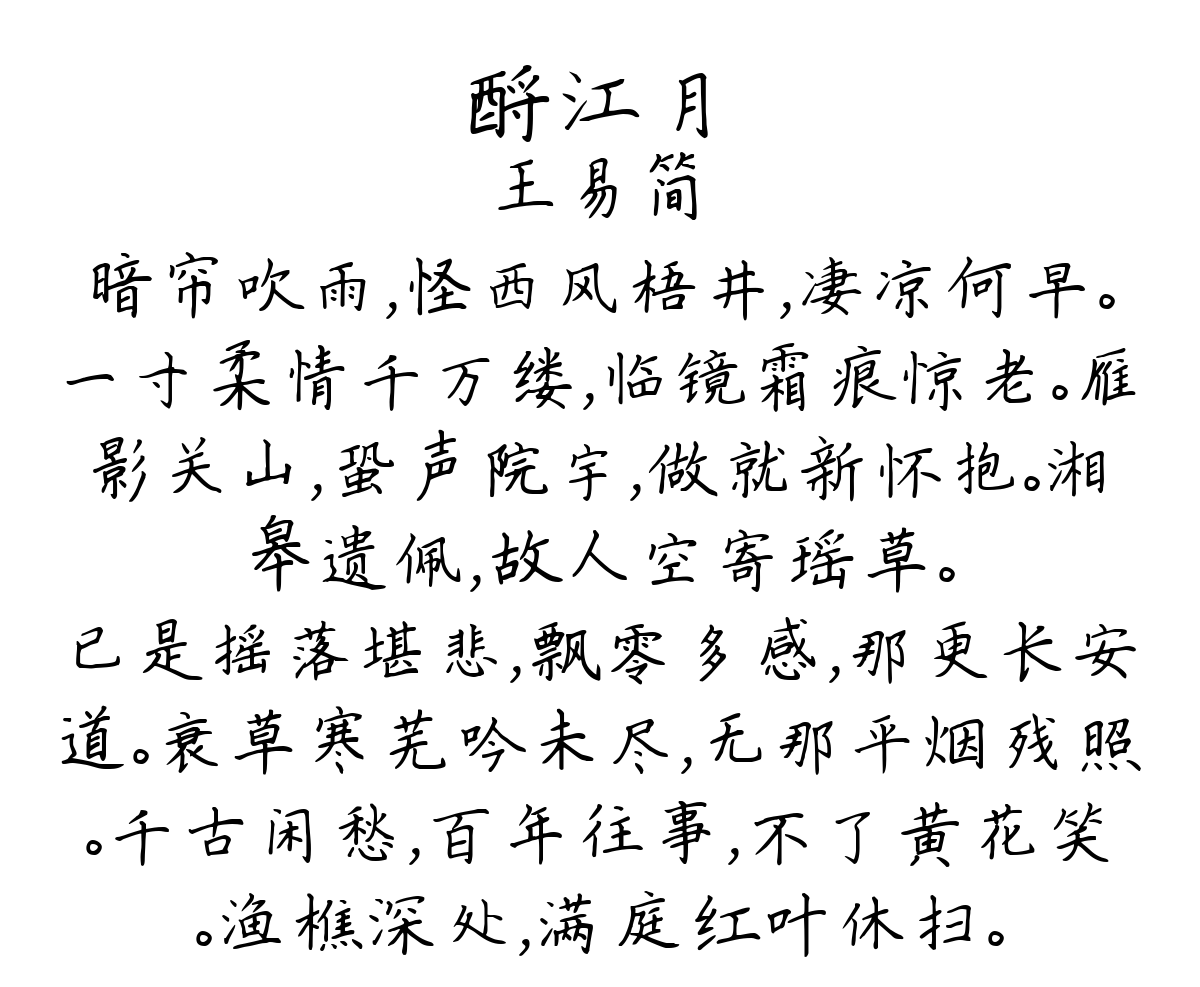 酹江月
王易简
暗帘吹雨,怪西风梧井,凄凉何早。
一寸柔情千万缕,临镜霜痕惊老。雁
影关山,蛩声院宇,做就新怀抱。湘
皋遗佩,故人空寄瑶草。
已是摇落堪悲,飘零多感,那更长安
道。衰草寒芜吟未尽,无那平烟残照
。千古闲愁,百年往事,不了黄花笑
。渔樵深处,满庭红叶休扫。